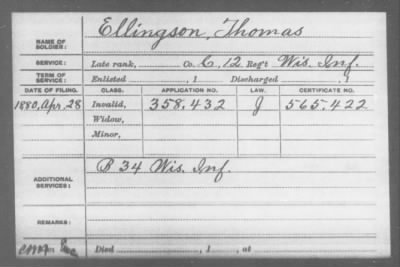 NAME OF SOLDIER: Ellingson, Thomas
SERVICE: Late rank, Co. C, 12 Reg't Wis. Inf.
TERM OF SERVICE: Enlisted , 1 Discharged , 1
DATE OF FILING. CLASS. APPLICATION NO. LAW. CERTIFICATE NO.
1880, Apr. 28 Invalid, 358,432 J 565,422
Widow,
Minor,
ADDITIONAL SERVICES: B 34 Wis. Inf.
REMARKS:
Died , 1 , at